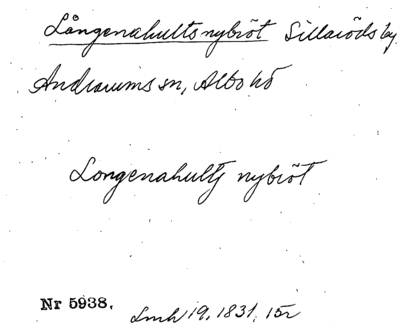 Långenahults nybröt Sillaröds by.
Andrarums sn, Albo hd
Longenahultz nybröt
Nr 5938. Lmh 19. 1831. 15r